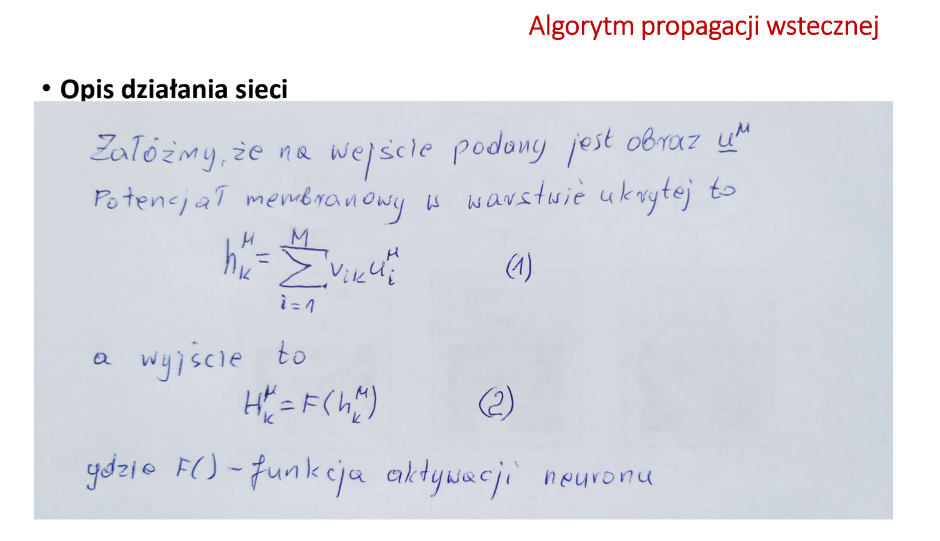 Algorytm propagacji wstecznej
• Opis działania sieci
Załóżmy, że na wejście podany jest obraz u^μ
Potencjał membranowy w warstwie ukrytej to
h_k^μ = ∑_{i=1}^{M} v_{ik} u_i^μ (1)
a wyjście to
H_k^μ = F(h_k^μ) (2)
gdzie F() - funkcja aktywacji neuronu